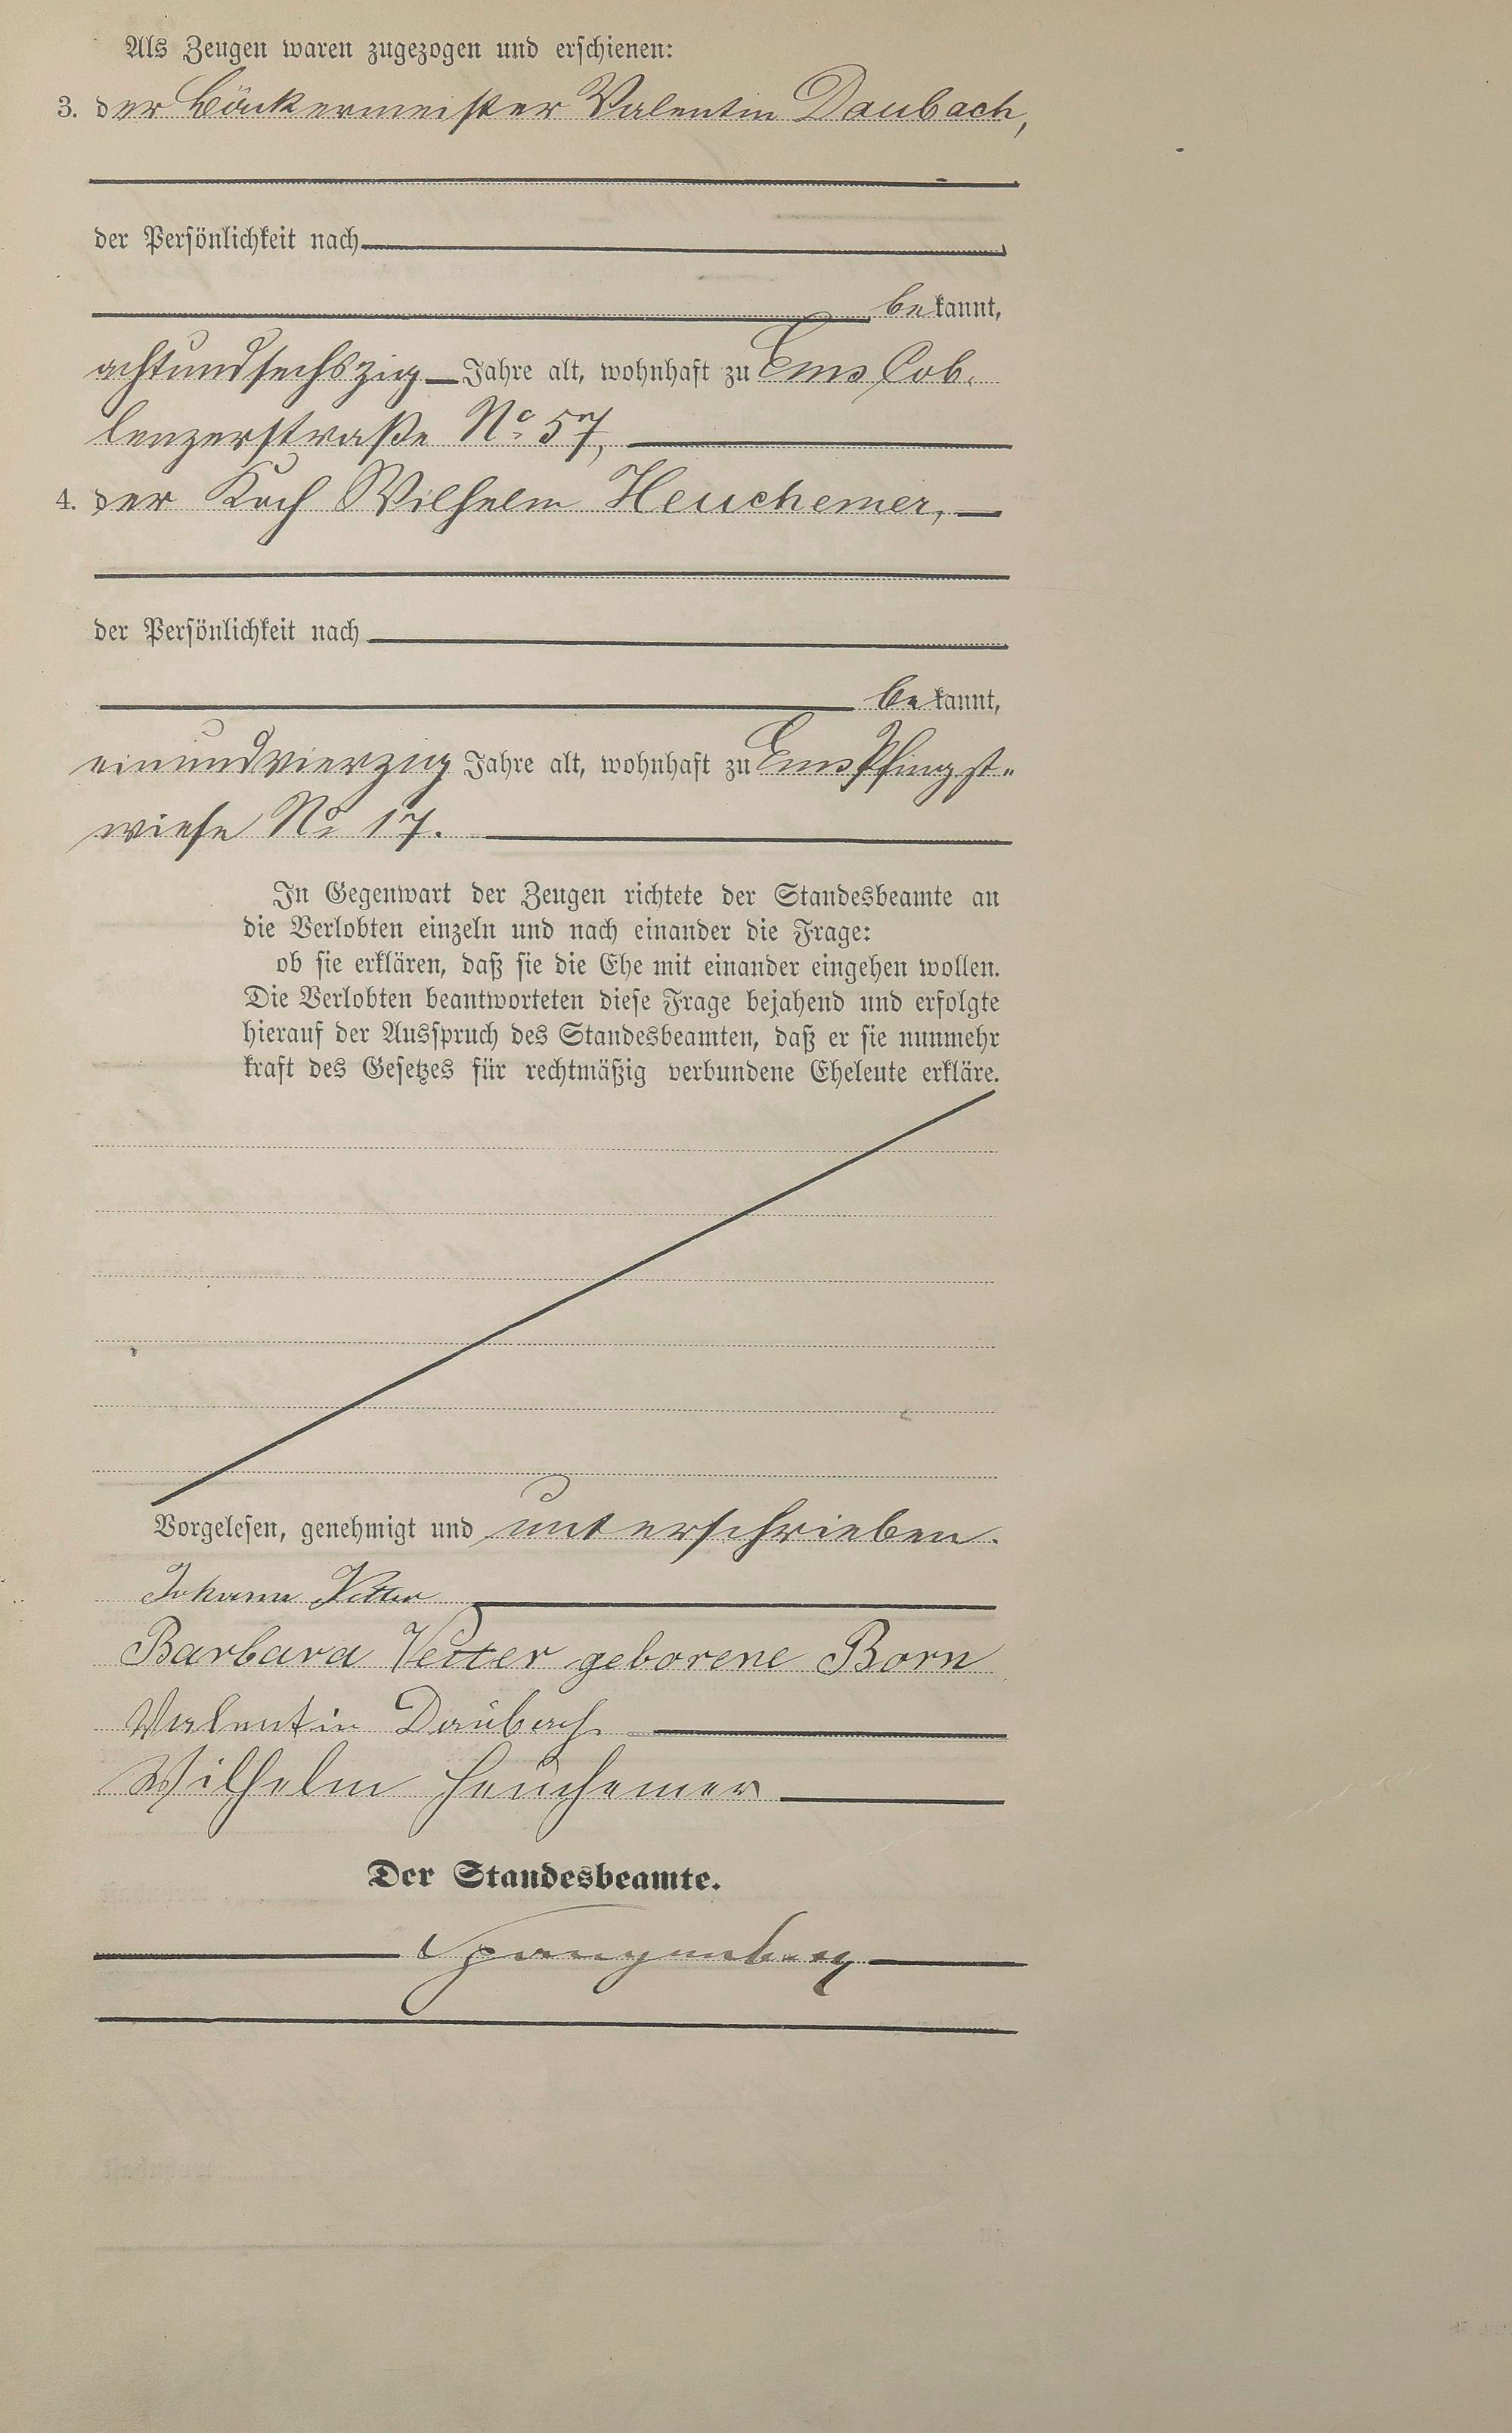 Als Zeugen waren zugezogen und erschienen:
3. der Bäckermeister Valentin Daubach,
der Persönlichkeit nach
bekannt,
achtundsechszig Jahre alt, wohnhaft zu Ems Cob-
lenzerstraße No 57,
4. der Koch Wilhelm Heuchemer,
der Persönlichkeit nach
bekannt,
einundvierzig Jahre alt, wohnhaft zu Ems Pfingst-
wiese No 17.
In Gegenwart der Zeugen richtete der Standesbeamte an
die Verlobten einzeln und nach einander die Frage:
ob sie erklären, daß sie die Ehe mit einander eingehen wollen.
Die Verlobten beantworteten diese Frage bejahend und erfolgte
hierauf der Ausspruch des Standesbeamten, daß er sie nunmehr
kraft des Gesetzes für rechtmäßig verbundene Eheleute erkläre.
Vorgelesen, genehmigt und unterschrieben.
Johann Vetter
Barbara Vetter geborene Born
Valentin Daubach
Wilhelm Heuchemer
Der Standesbeamte.
Spangenberg